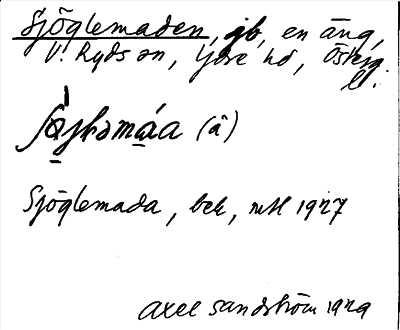 Sjöglemaden, jb, en äng,
V. Ryd sn, Ydre hd, Österg.
l.
(â)
Sjöglemada, bek, mtl 1927
Axel Sandström 1929